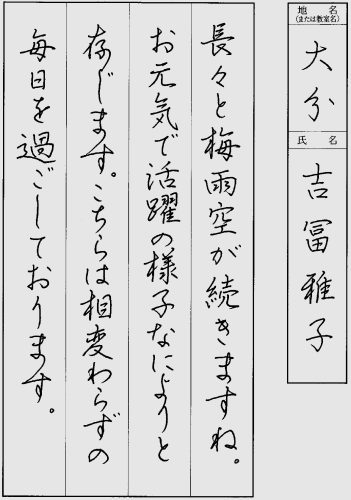 地名
(または教室名)
大分
氏名
吉冨雅子
長々と梅雨空が続きますね。
お元気で活躍の様子なによりと
存じます。こちらは相変わらずの
毎日を過ごしております。